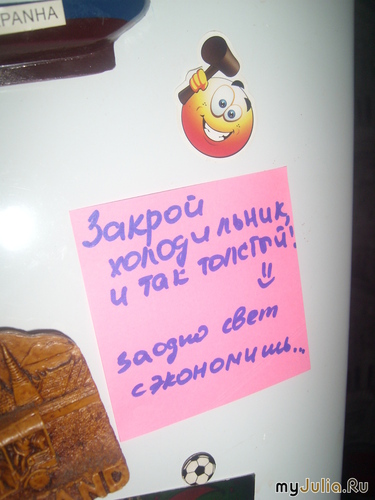 PANHA
Закрой
холодильник,
и так толстый!
заодно свет
сэкономишь...
END
myJulia.Ru